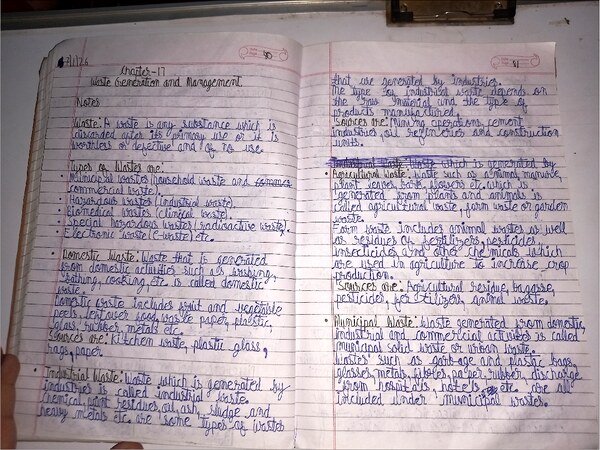 Chapter-17
Waste Generation and Management
Notes
Waste: A waste is any substance which is
discarded after its primary use or it is
worthless or defective and of no use.
Types of Wastes are:
• Municipal wastes (household waste and
commercial waste).
Hazardous wastes (industrial waste).
Biomedical wastes (clinical waste).
Special hazardous wastes (radioactive waste).
Electronic waste (E-waste) etc.
• Domestic Waste: Waste that is generated
from domestic activities such as washing,
bathing, cooking, etc. is called domestic
waste.
Domestic waste includes fruit and vegetable
peels, leftover food, waste paper, plastic,
glass, rubber, metals etc.
Sources are: Kitchen waste, plastic, glass,
rags, paper.
• Industrial Waste: Waste which is generated by
industries is called industrial waste.
Chemical, paint residues, oil, ash, sludge and
heavy metals etc. are some types of wastes
that are generated by Industries.
The type of industrial waste depends on
the raw material and the type of
products manufactured.
Sources are: Mining operations, cement
industries, oil refineries and construction
units.
Waste which is generated by
• Agricultural Waste: Waste such as animal manure,
plant leaves, bark, flowers etc. which is
generated from plants and animals is
called agricultural waste, farm waste or garden
waste.
Farm waste includes animal wastes as well
as residues of fertilizers, pesticides,
insecticides and other chemicals which
are used in agriculture to increase crop
production.
Sources are: Agricultural residue, bagasse,
pesticides, fertilizers, animal waste.
• Municipal Waste: Waste generated from domestic,
industrial and commercial activities is called
municipal solid waste or urban waste.
Wastes such as garbage and plastic bags,
glasses, metals, fibres, paper, rubber, discharge
from hospitals, hotels etc. are all
included under municipal wastes.